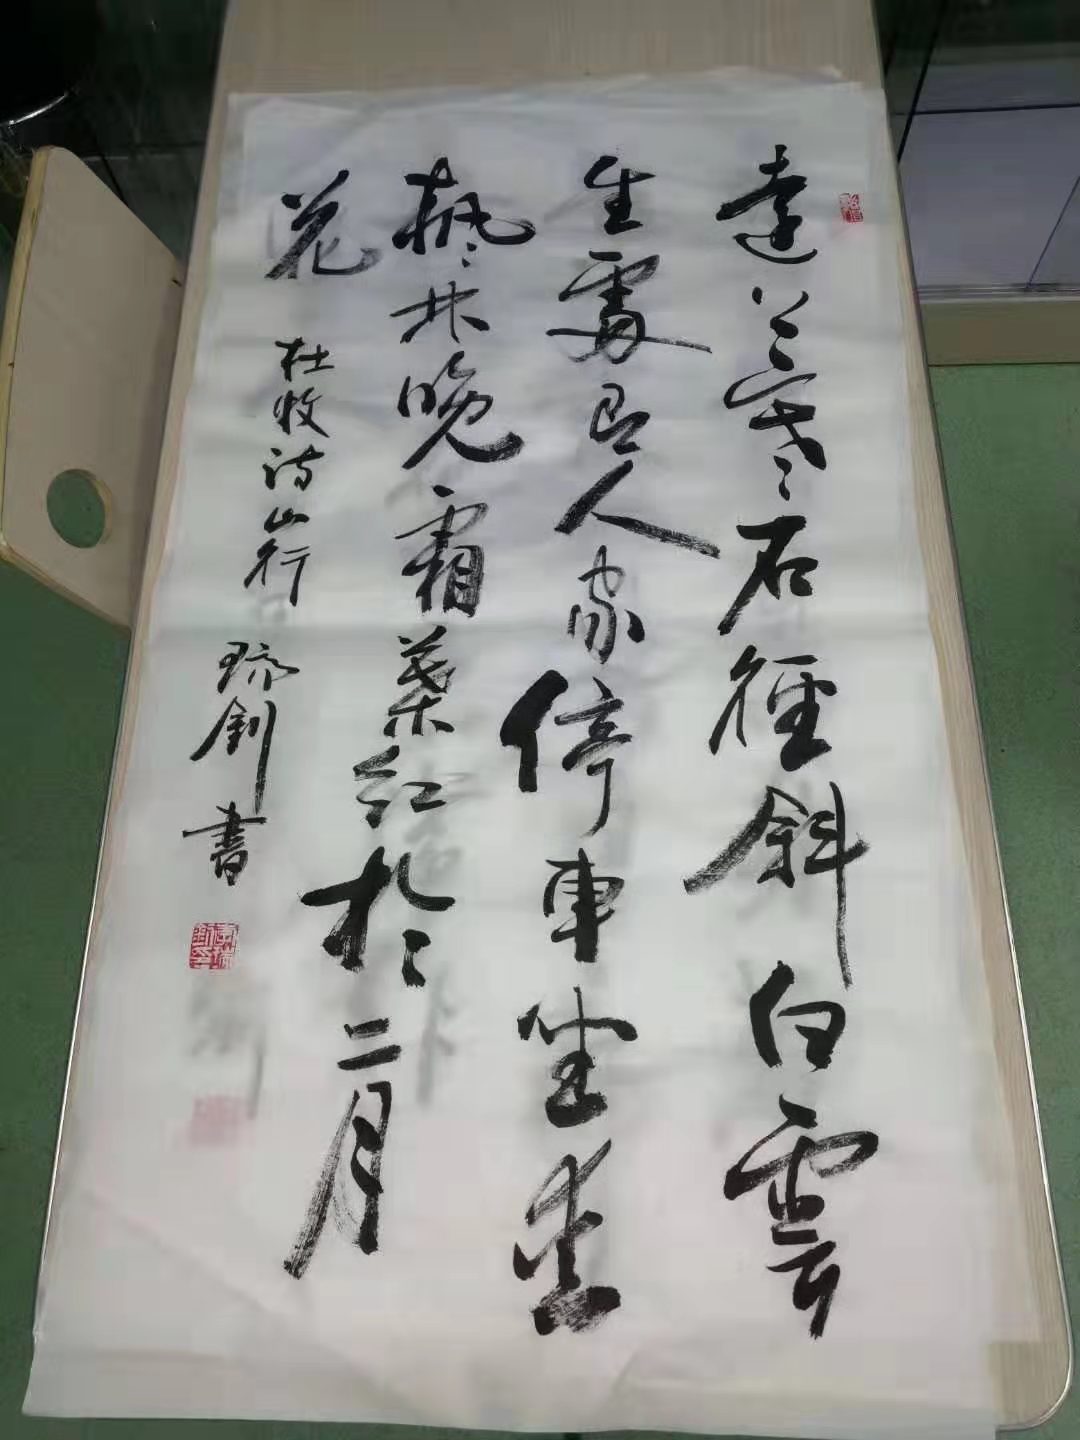 遠上寒石徑斜白雲
生處有人家停車坐愛
楓林晚霜葉紅於二月
花
杜牧诗山行 釗書